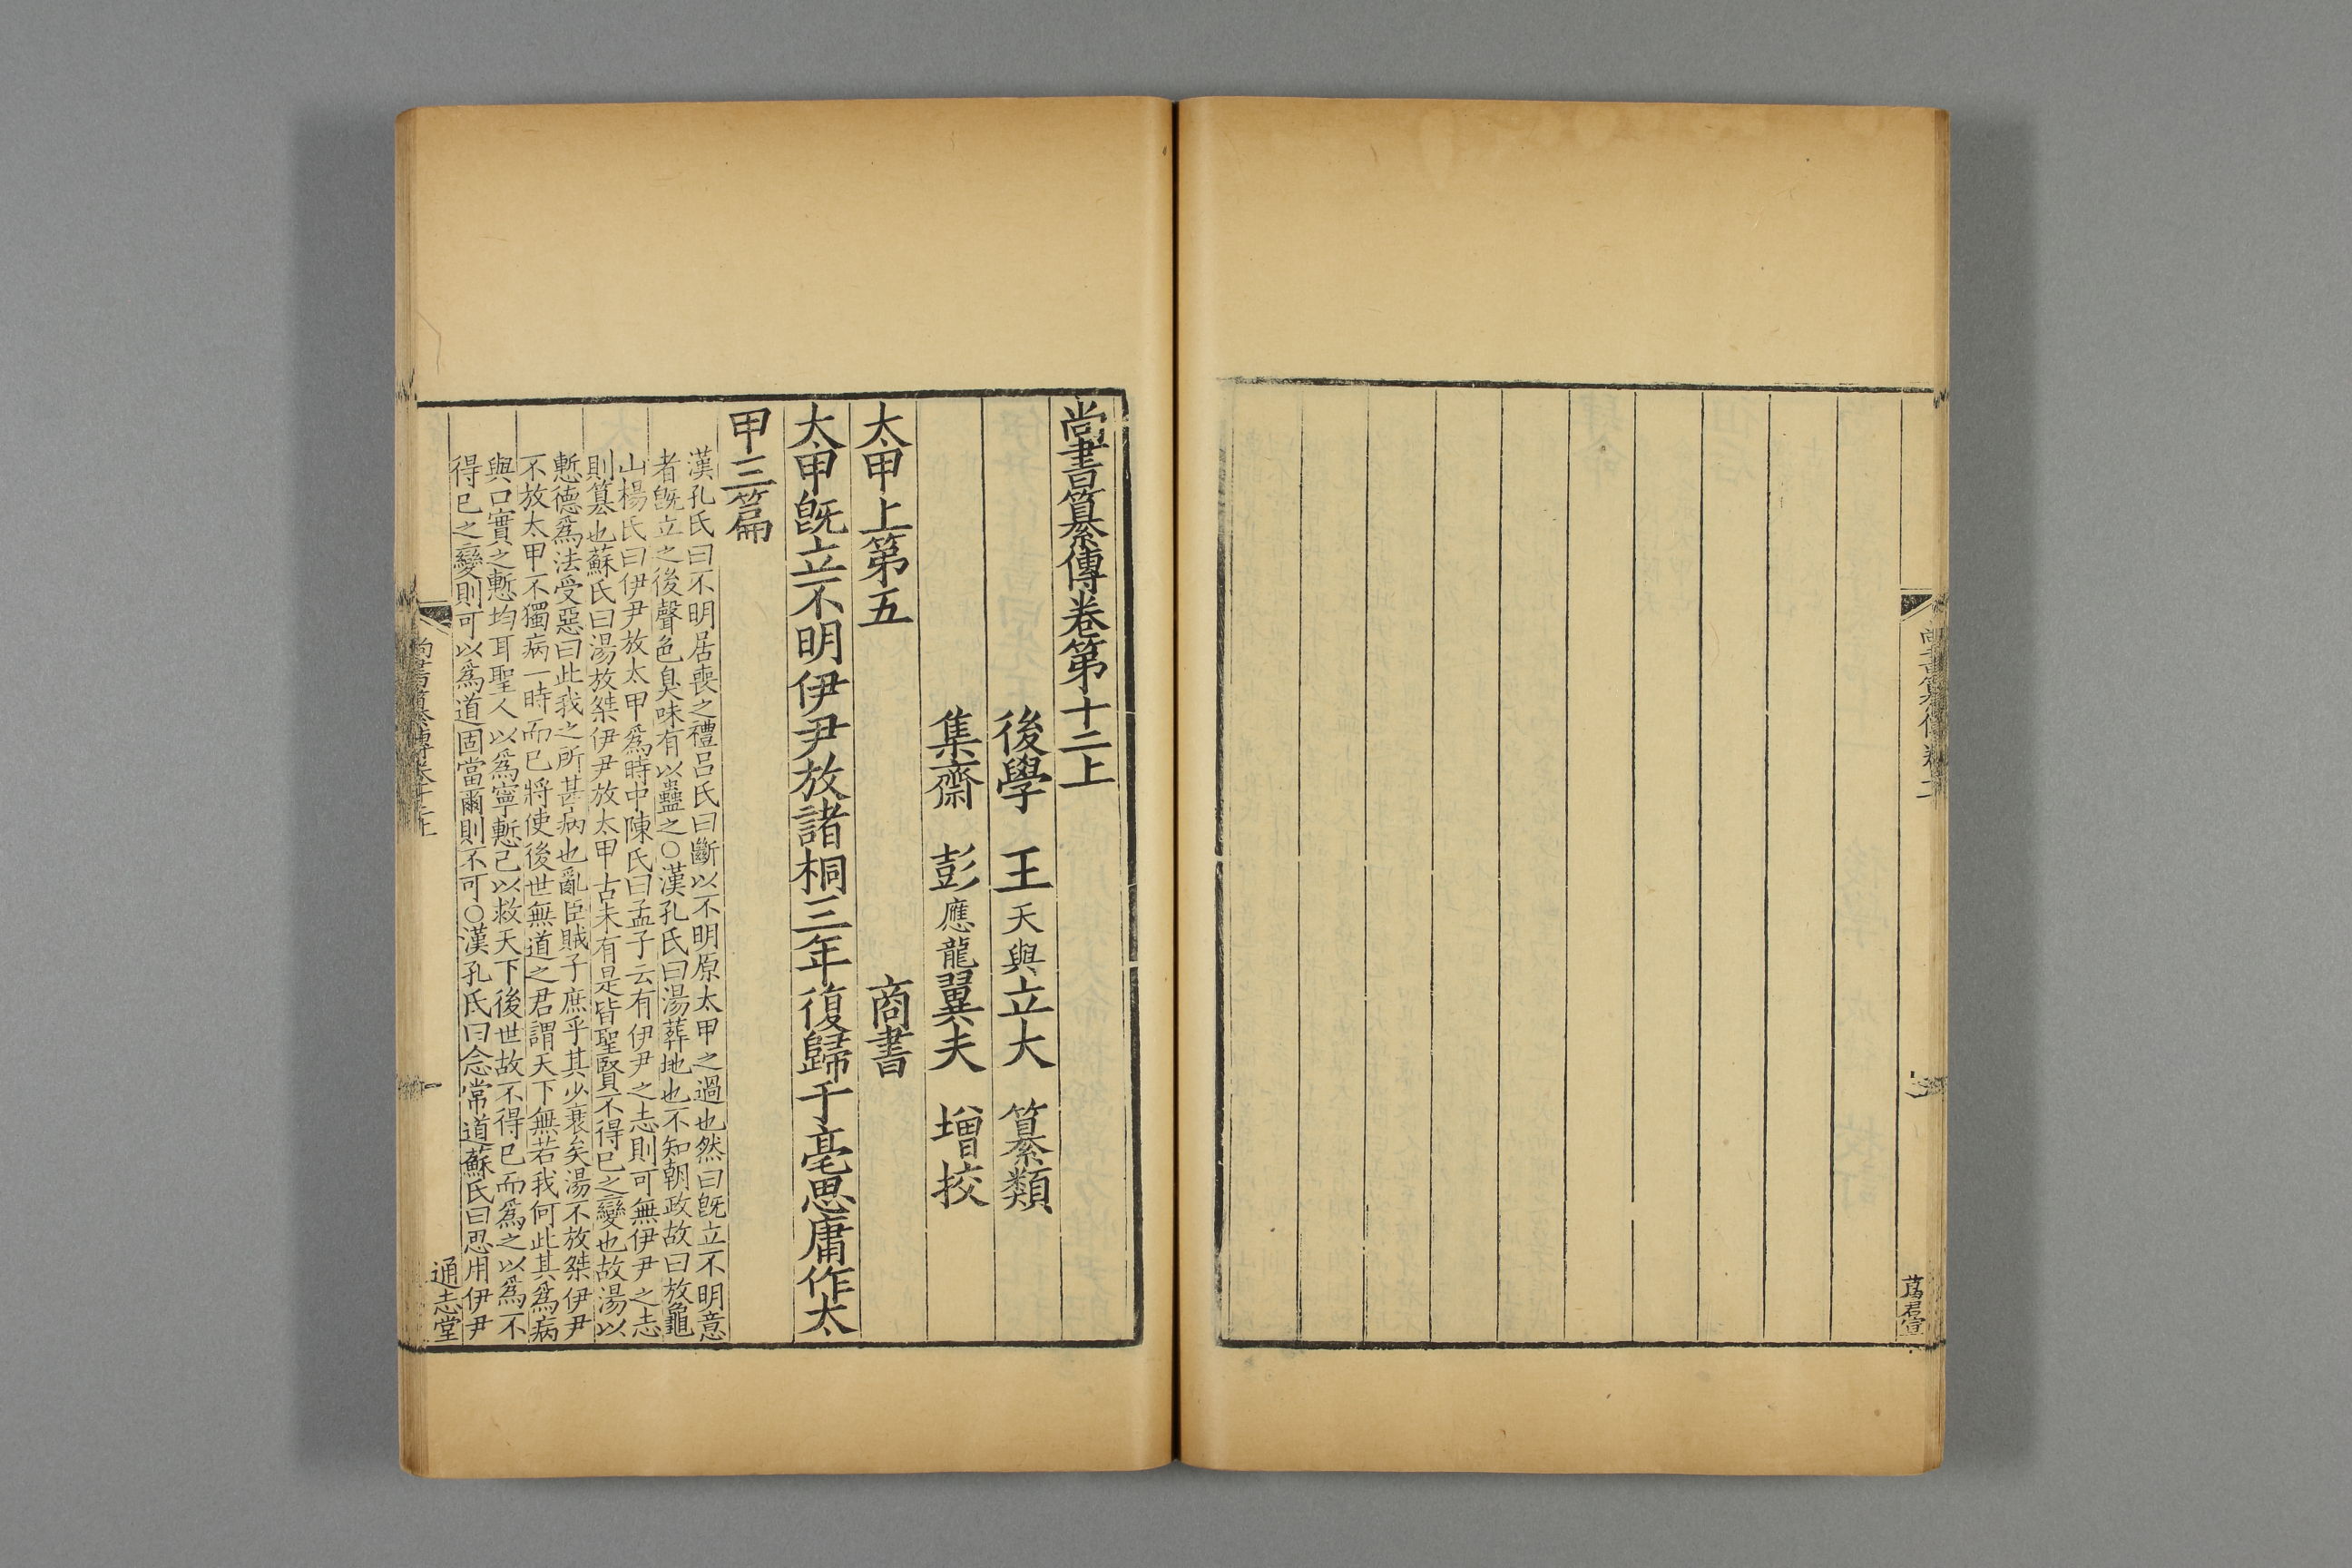 尚書纂傳卷第十二上
後學　王天與立大　纂類
集齋　彭應龍翼夫　增挍
太甲上第五　商書
太甲旣立不明伊尹放諸桐三年復歸于亳思庸作太
甲三篇
漢孔氏曰不明居喪之禮呂氏曰斷以不明原太甲之過也然曰旣立不明意
者旣立之後聲色臭味有以蠱之○漢孔氏曰湯葬地也不知朝政故曰放龜
山楊氏曰伊尹放太甲爲時中陳氏曰孟子云有伊尹之志則可無伊尹之志
則簒也蘇氏曰湯放桀伊尹放太甲古未有是皆聖賢不得已之變也故湯以
慙德爲法受惡曰此我之所甚病也亂臣賊子庶乎其少衰矣湯不放桀伊尹
不放太甲不獨病一時而已將使後世無道之君謂天下無若我何此其爲病
與口實之慙均耳聖人以爲寧慙己以救天下後世故不得已而爲之以爲不
得已之變則可以爲道固當爾則不可○漢孔氏曰念常道蘇氏曰思用伊尹
尚書纂傳卷十二上
一
通志堂